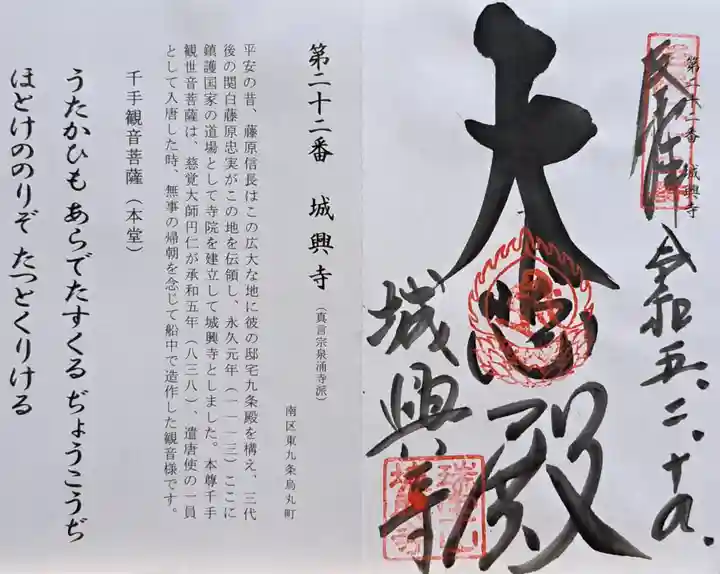 第二十二番 城興寺
奉拝
令和五.二.十九
大悲殿
城興寺
第二十二番 城興寺（真言宗泉涌寺派）
南区東九条烏丸町
平安の昔、藤原信長はこの広大な地に彼の邸宅九条殿を構え、三代
後の関白藤原忠実がこの地を伝領し、永久元年（一一一三）ここに
鎮護国家の道場として寺院を建立して城興寺としました。本尊千手
観世音菩薩は、慈覚大師円仁が承和五年（八三八）、遣唐使の一員
として入唐した時、無事の帰朝を念じて船中で造作した観音様です。
千手観音菩薩（本堂）
うたかひも あらでたすくる ぢょうこうぢ
ほとけののりぞ たつとくりける